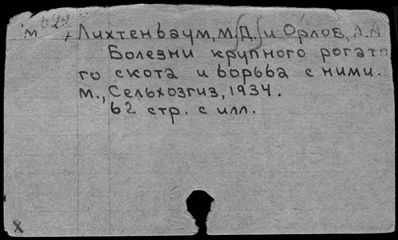 м 629
Лихтенбаум, М.Д. и Орлов, А.А
Болезни крупного рогато
го скота и борьба с ними.
М., Сельхозгиз, 1934.
62 стр. с илл.
х